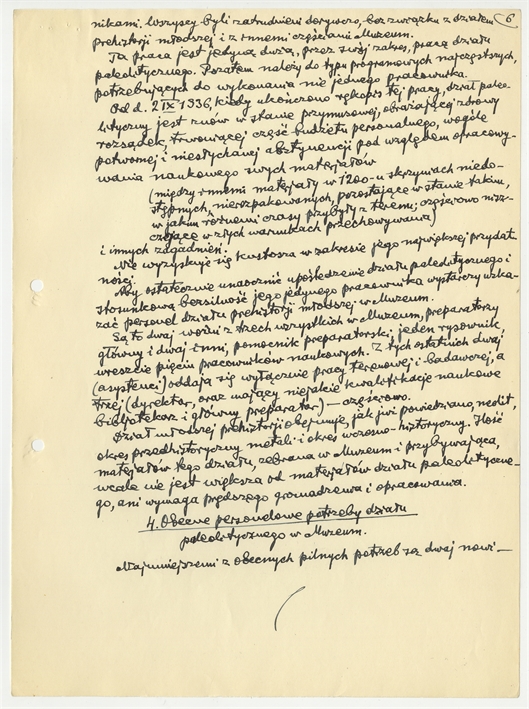 6
nikami. Wszyscy byli zatrudnieni dorywczo, bez związku z działem
prehistorji młodszej i z innemi częściami Muzeum.
Ta praca jest jedyną dużą, przez swój zakres, pracą działu
paleolitycznego. Pozatem należy do typu programowych najczęstszych,
potrzebujących do wykonania nie jednego pracownika.
Od d. 2 IX 1936, kiedy ukończono rękopis tej pracy, dział paleo-
lityczny jest znów w stanie przymusowej, obrażającej zdrowy
rozsądek, trwoniącej część budżetu personalnego, wogóle
potwornej i niesłychanej abstynencji pod względem opracowy-
wania naukowego swych materjałów
(między innemi materjały w 1200-u skrzyniach niedo-
stępnych, nierozpakowanych, pozostające w stanie takim,
w jakim różnemi czasy przybyły z terenu; częściowo nisz-
czejące w złych warunkach przechowywania)
i innych zagadnień.
Nie wyzyskuje się kustosza w zakresie jego największej przydat-
ności.
Aby ostatecznie unaocznić upośledzenie działu paleolitycznego i
stosunkową bezsilność jego jedynego pracownika wystarczy wska-
zać personel działu prehistorji młodszej w Muzeum.
Są to dwaj woźni z trzech wszystkich w Muzeum, preparatorzy
główny i dwaj inni, pomocnik preparatorski, jeden rysownik,
wreszcie pięciu pracowników naukowych. Z tych ostatnich dwaj
(asystenci) oddają się wyłącznie pracy terenowej i badawczej, a
trzej (dyrektor, oraz mający niejakie kwalifikacje naukowe
bibljotekarz i główny preparator) — częściowo.
Dział młodszej prehistorji obejmuje, jak już powiedziano, neolit,
okres przedhistoryczny metali i okres wczesno-historyczny. Ilość
materjałów tego działu, zebrana w Muzeum i przybywająca,
wcale nie jest większa od materjałów działu paleolityczne-
go, ani wymaga prędszego gromadzenia i opracowania.
4. Obecne personelowe potrzeby działu
paleolitycznego w Muzeum.
Najmniejszemi z obecnych pilnych potrzeb są dwaj nowi —